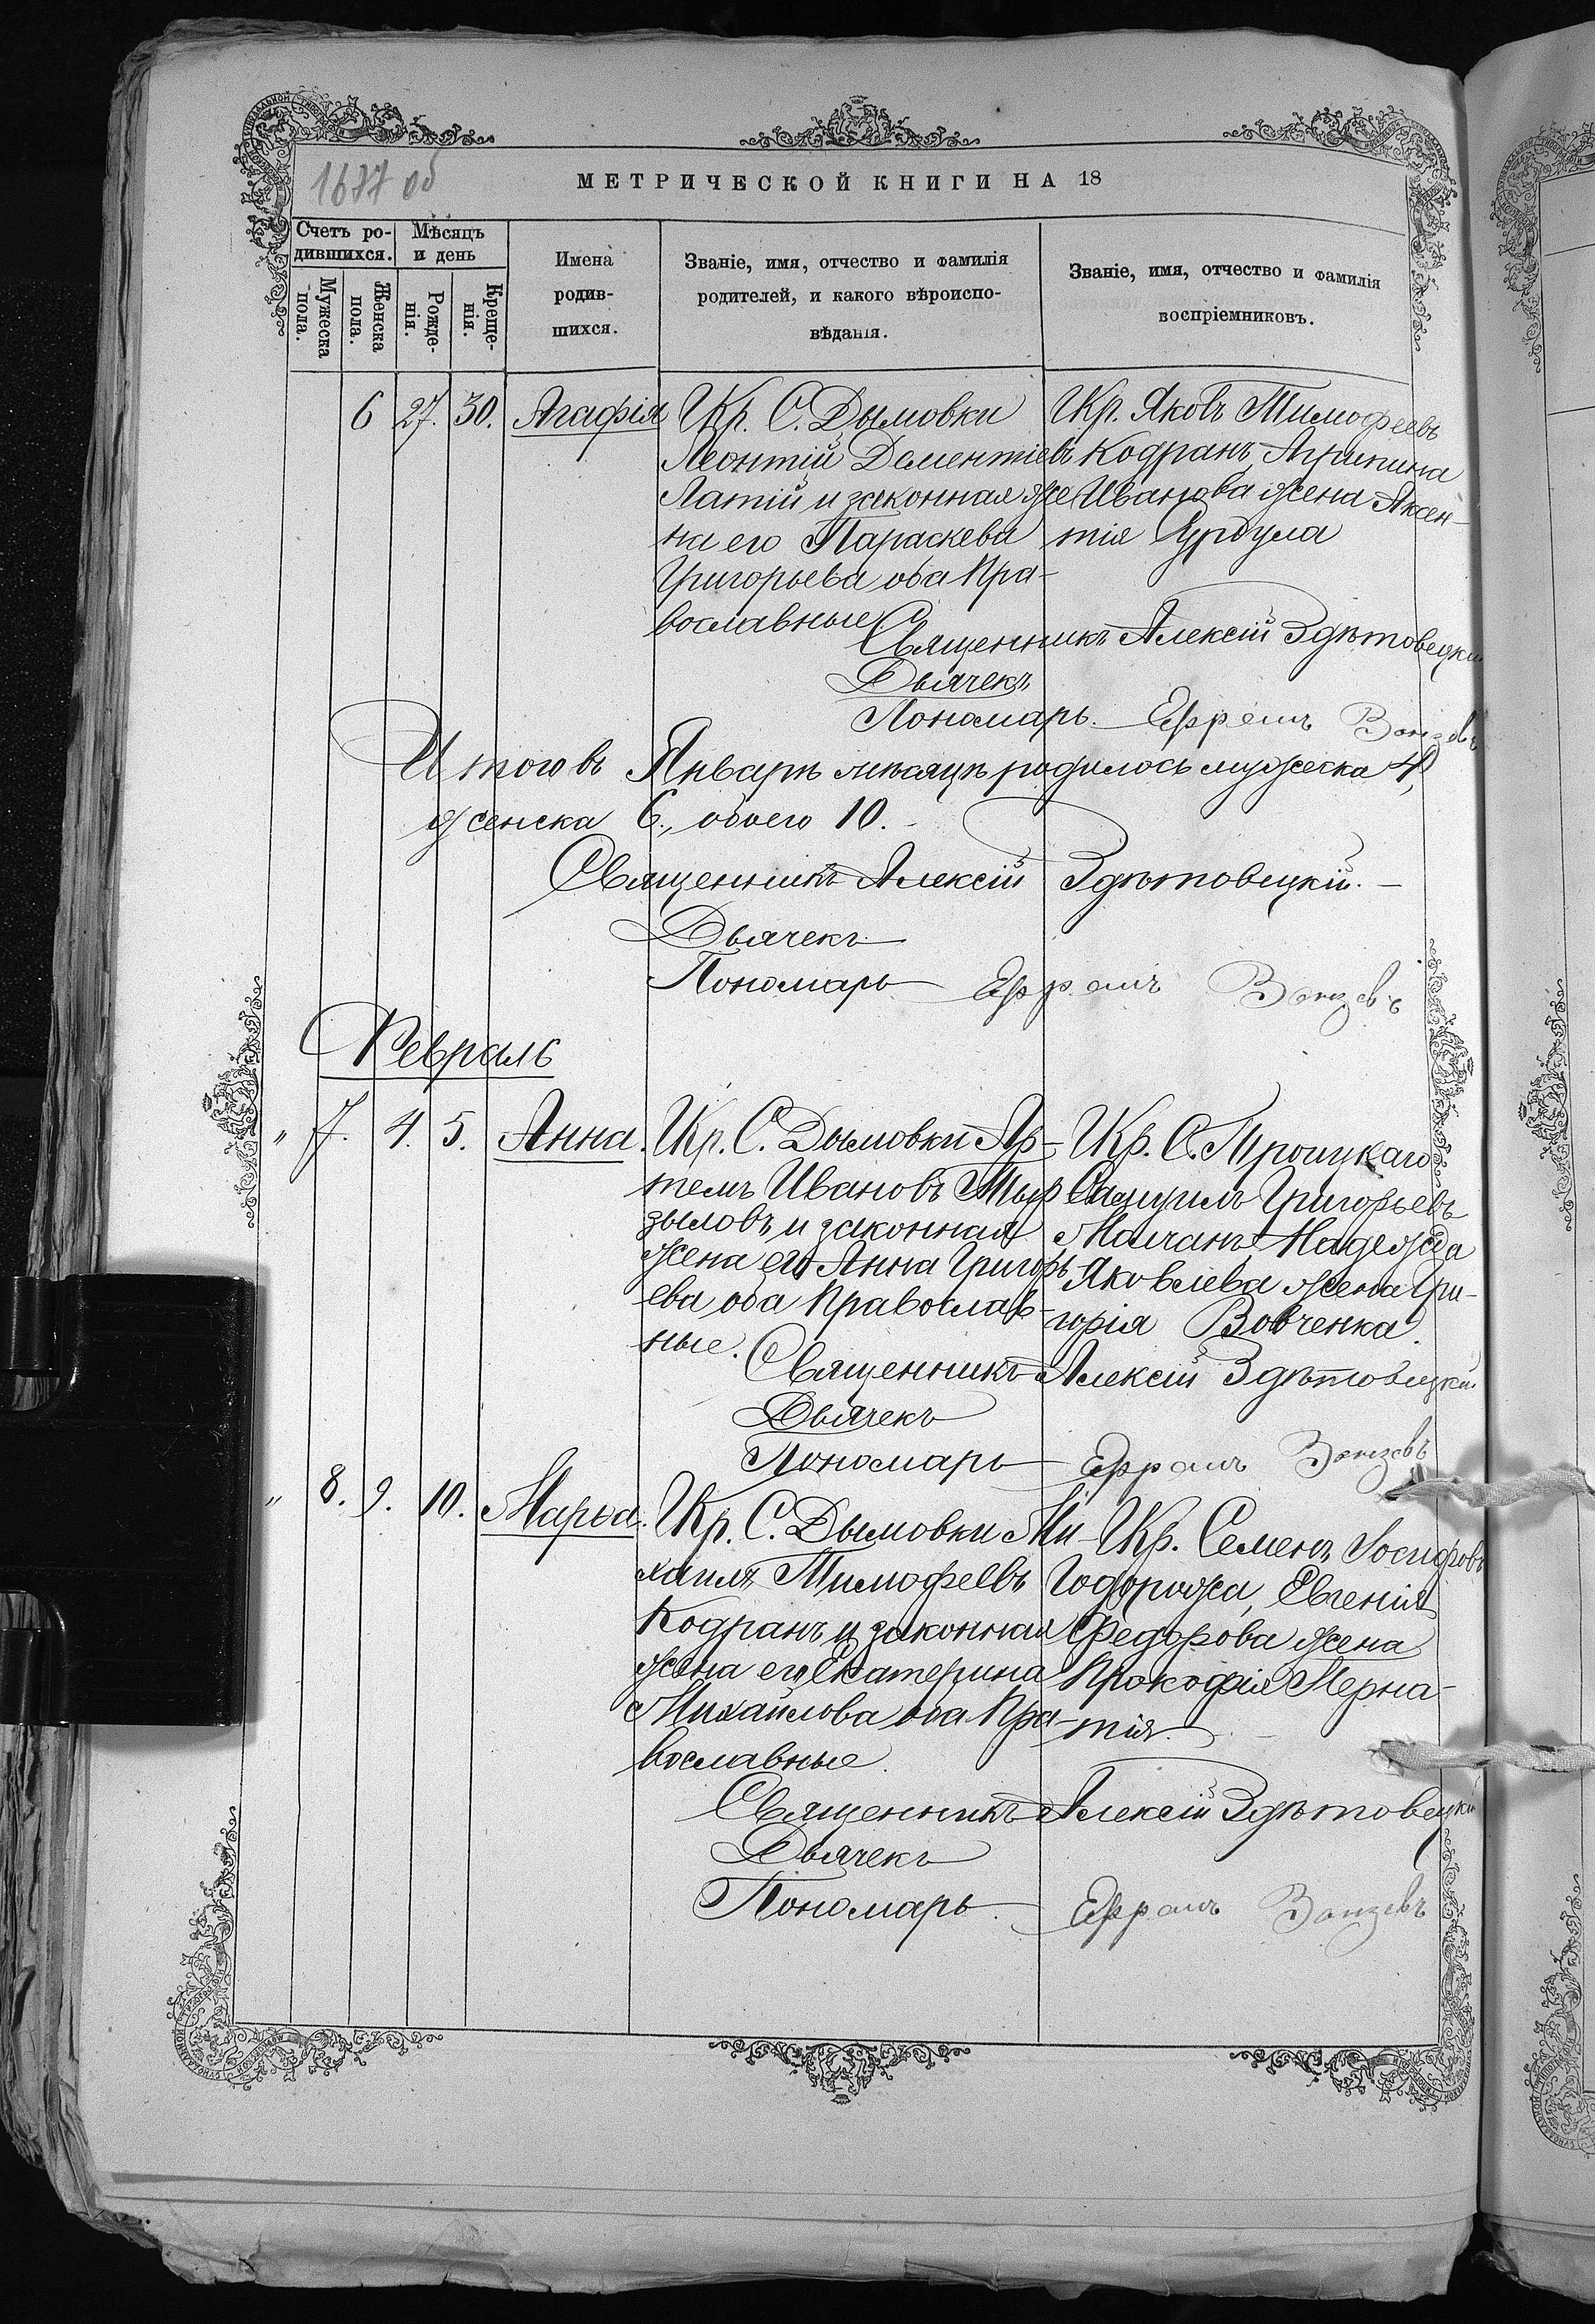 1677 об
МЕТРИЧЕСКОЙ КНИГИ НА 18
Счетъ ро-
дившихся.
Мѣсяцъ
и день
Мужеска
пола.
Женска
пола.
Рожде-
нія.
Креще-
нія.
Имена
родив-
шихся.
Званіе, имя, отчество и фамилія
родителей, и какого вѣроиспо-
вѣданія.
Званіе, имя, отчество и фамилія
воспріемниковъ.
6 27. 30. Агафія
Кр. С. Дымовки
Леонтій Дементіевъ
Латій и законная же
на его Параскева
Григорьева оба Пра-
вославные
Кр. Яковъ Тимофеевъ
Кодранъ, Агрипина
Иванова жена Аксен-
тія Бурдула
Священникъ Алексій Здѣтовецкій
Дьячекъ
Пономарь. Ефремъ
Итого въ Январѣ мѣсяцѣ родилось мужеска 4,
женска 6., обоего 10.
Священникъ Алексій Здѣтовецкій.
Дьячекъ
Пономарь Ефремъ
Февраль
" 7. 4. 5. Анна.
Кр. С. Дымовки Ар-
темъ Ивановъ Тыр
зыловъ и законная
жена его Анна Григорь
ева оба Православ-
ные.
Кр. С. Троицкаго
Самуилъ Григорьевъ
Малчанъ, Надежда
Яковлева жена Гри-
горія Вовченка.
Священникъ Алексій Здѣтовецкій
Дьячекъ
Пономарь Ефремъ
" 8. 9. 10. Марья.
Кр. С. Дымовки Ми-
хаилъ Тимофеевъ
Кодранъ и законная
жена его Екатерина
Михайлова оба Пра-
вославные.
Кр. Семенъ Іосифовъ
Годорожа, Евгенія
Федорова жена
Прокофія Терна-
тія.
Священникъ Алексій Здѣтовецкій
Дьячекъ
Пономарь. Ефремъ